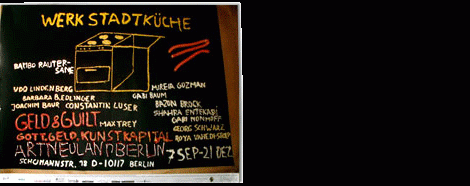 WERKSTADTKÜCHE
BARIBO RAUTER-
SANE
UDO LINDENBERG
BARBARA B.EDLINGER
JOACHIM BAUR CONSTANTIN LUSER
MIREIA GUZMAN
GABI BAUM
BAZON BROCK
SHAHRA ENTEKABI
GABI NONHOFF
GEORG SCHWARZ
GELD & GUILT MAX TREY
GOTT, GELD, KUNSTKAPITAL
ARTNEULANDBERLIN
7 SEP-21 DEZ
SCHUMANNSTR. 18 D-10117 BERLIN